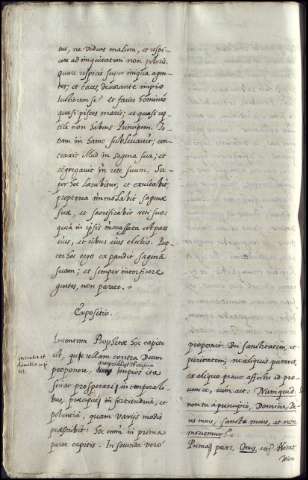 tui, ne videas malum, et respi-
cere ad iniquitatem non poteris.
quare respicis super iniqua agen-
tes; et taces devorante impio
iustiorem se? et facies homines
quasi pisces maris; et quasi rep-
tile non habens Principem. To-
tum in hamo sublevavit;
traxit illud in sagena sua; et
congregavit in rete suum. Su-
per hoc laetabitur, et exultabit
propterea immolabit sagenae
suae, et sacrificabit reti suo;
quia in ipsis incrassata est pars
eius, et cibus eius electus. Prop-
ter hoc ergo expandit sagenā
suam; et semper interficere
gentes, non parcet.
Expositio.
Intentum Prophetae hoc capite
est, querellam contra Deum
proponere, impios
sinat prosperari in temporali-
bus, precipuè in fortitudine, et
potentia, quam varijs modis
hoc enim in prima
parte capitis. In secunda vero
proponit Dei sanctitatem, et
puritatem, ne aliquis putaret,
ex aliquo pravo affectu id pro-
venire, cum ait: Nunquid
non tu a principio, Domine, De-
us meus, sancte meus, et non
moriemur?
Prima pars, Onus,